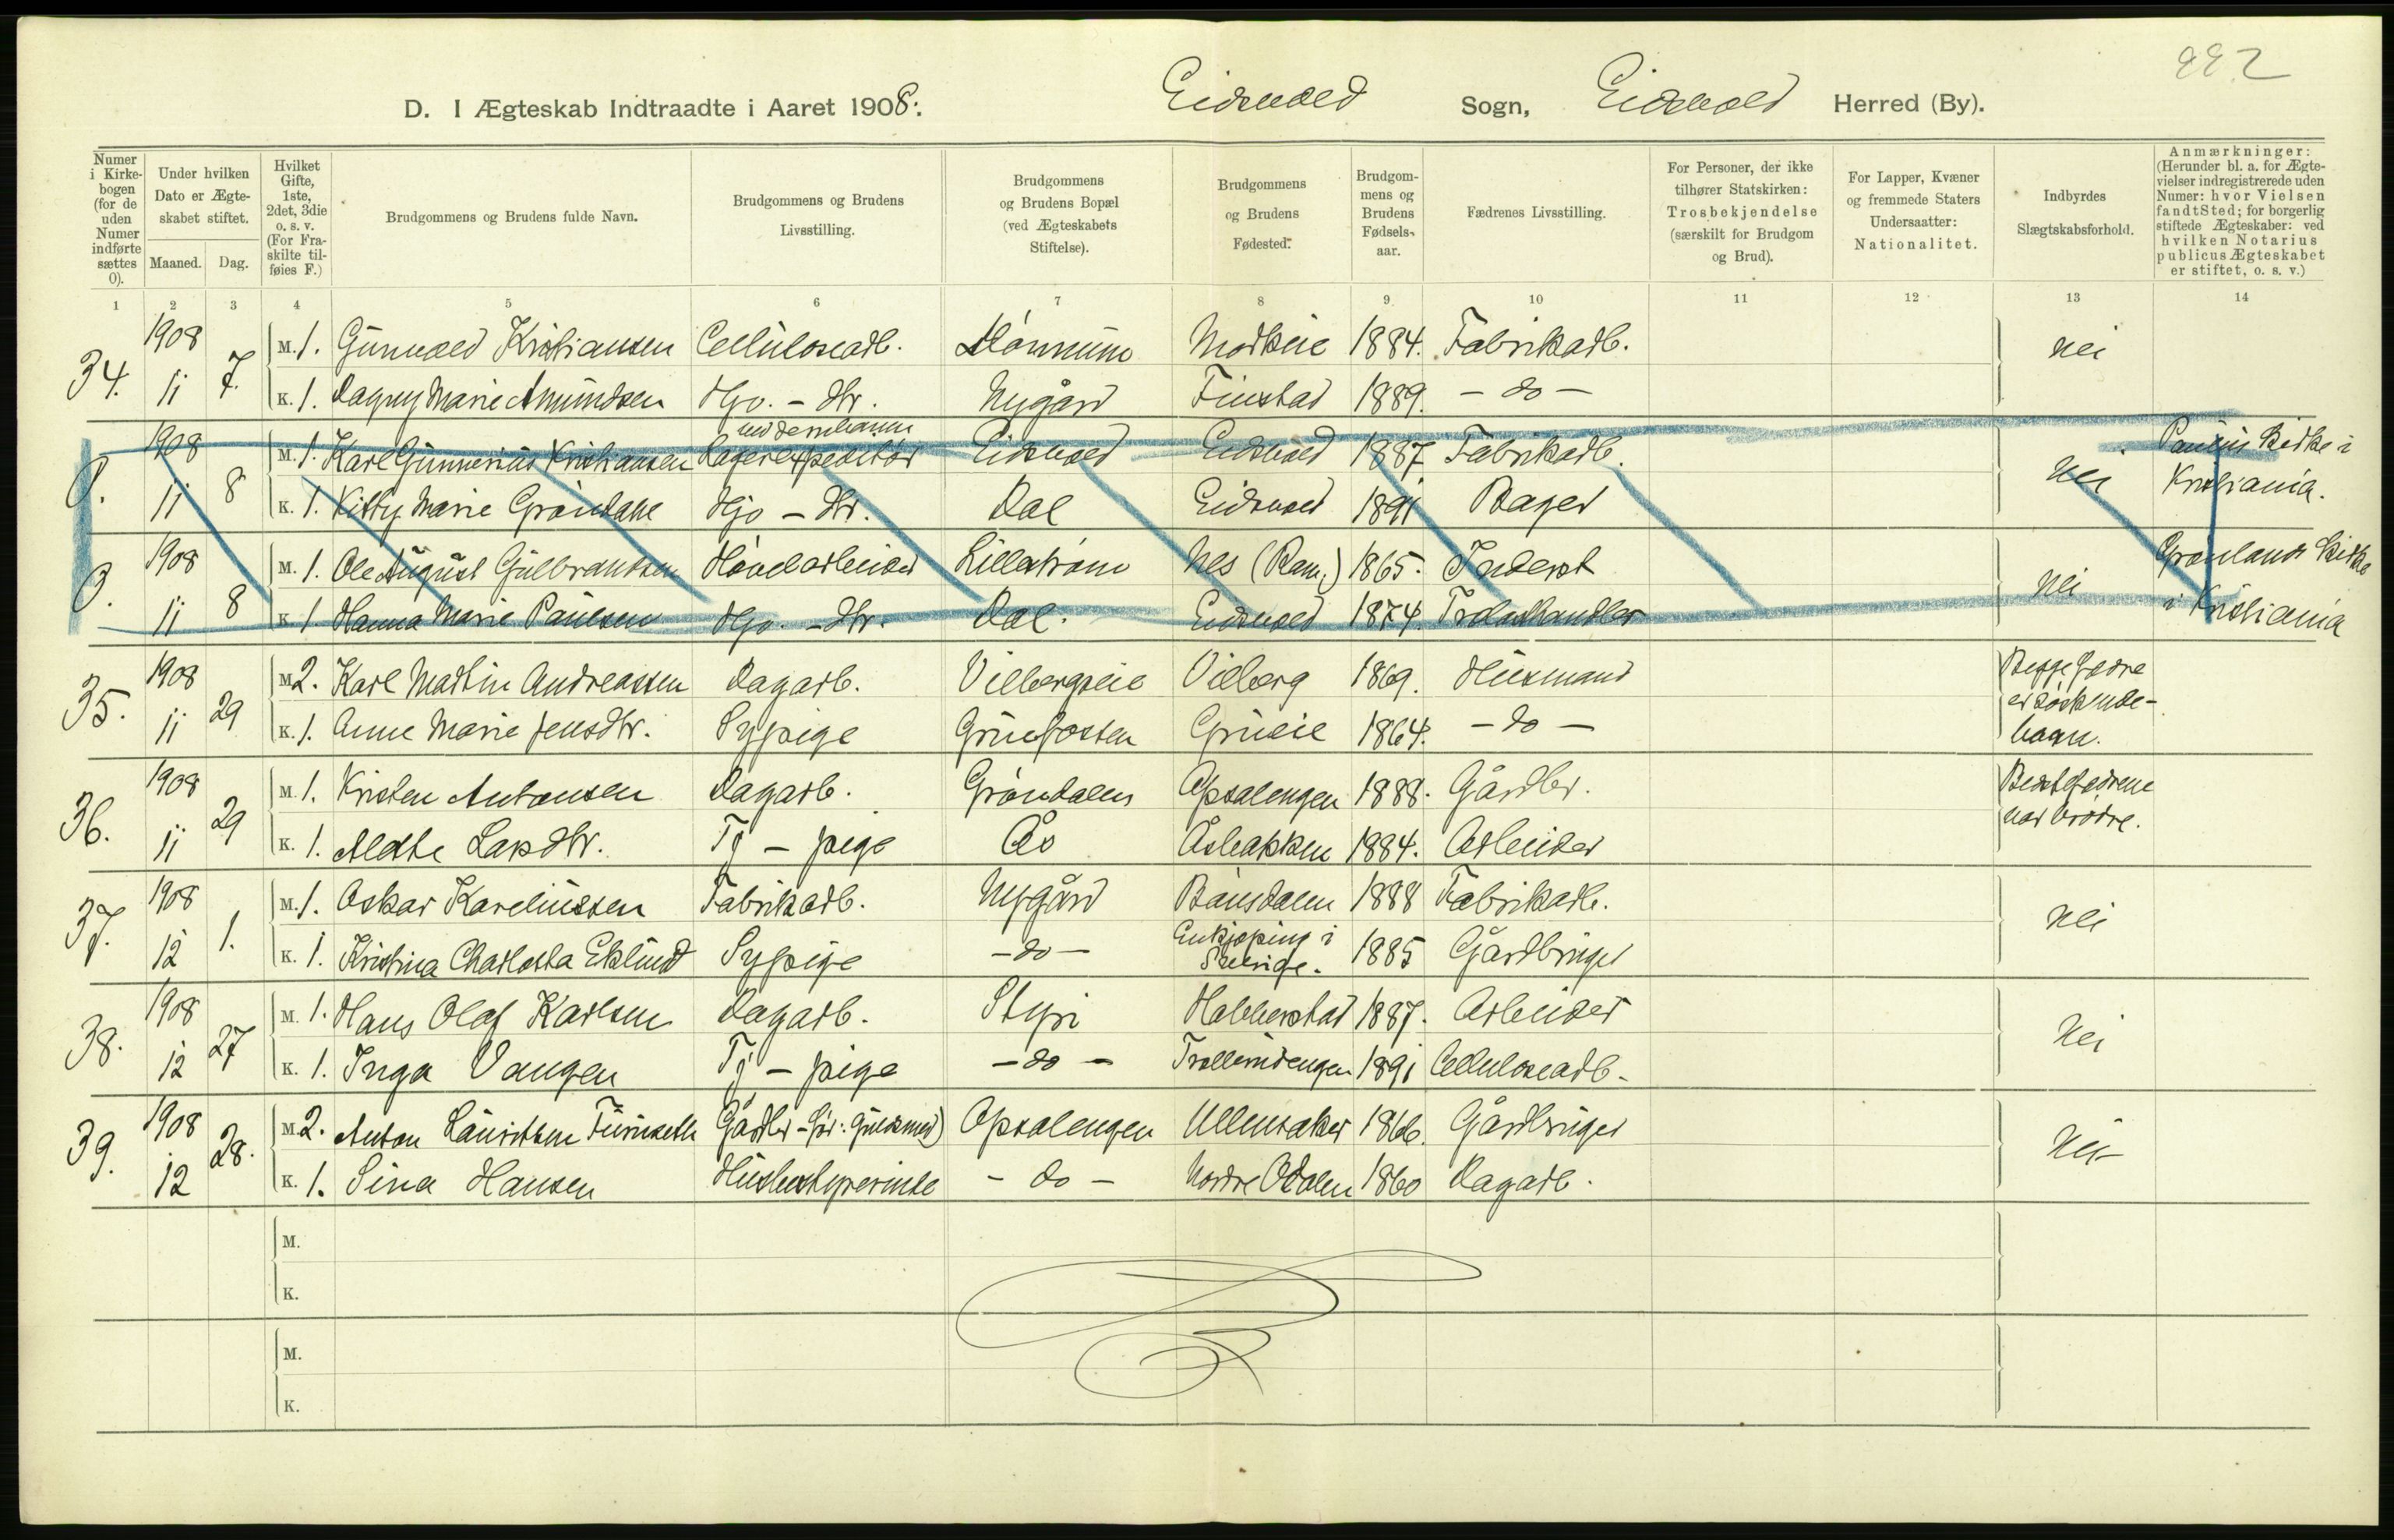 222
D. I Ægteskab Indtraadte i Aaret 1908: Eidsvold Sogn, Eidsvold Herred (By).
Numer i Kirkebogen (for de uden Numer indførte sættes 0).
Under hvilken Dato er Ægteskabet stiftet.
Maaned. Dag.
Hvilket Gifte, 1ste, 2det, 3die o. s. v. (For Fraskilte tilføies F.)
Brudgommens og Brudens fulde Navn.
Brudgommens og Brudens Livsstilling.
Brudgommens og Brudens Bopæl (ved Ægteskabets Stiftelse).
Brudgommens og Brudens Fødested.
Brudgommens og Brudens Fødselsaar.
Fædrenes Livsstilling.
For Personer, der ikke tilhører Statskirken: Trosbekjendelse (særskilt for Brudgom og Brud).
For Lapper, Kvæner og fremmede Staters Undersaatter: Nationalitet.
Indbyrdes Slægtskabsforhold.
Anmærkninger: (Herunder bl. a. for Ægtevielser indregistrerede uden Numer: hvor Vielsen fandt Sted; for borgerlig stiftede Ægteskaber: ved hvilken Notarius publicus Ægteskabet er stiftet, o. s. v.)
1 2 3 4 5 6 7 8 9 10 11 12 13 14
34. 1908 11 7. M. 1. Gunvald Kristiansen Cellulosearb. Mørkeie 1884. Fabrikarb. nei
K. 1. Dagny Marie Amundsen Hjv. - dtr. Nygård Finstad 1889. - do -
0. 1908 11 8 M. 1. Karl Gunnerius Kristiansen Lagerexpeditør Eidsvold Eidsvold 1887 Fabrikarb. nei Paulus Kirke i
K. 1. Kitty Marie Grøndahl Hjv - dtr. Dal Eidsvold 1891 Bager Kristiania.
0. 1908 11 8 M. 1. Ole August Gulbrandsen Høvelarbeider Lillestrøm Nes (Rom.) 1865. Inderst nei Grønlands Kirke
K. 1 Hanna Marie Paulsen Hjv. - dtr. Dal. Eidsvold 1874. Trælasthandler i Kristiania
35. 1908 11 29 M. 2. Karl Martin Andreassen Dagarb. Vilbergseie Vilberg 1869. Husmand Begges Fædre
er søskende-
barn.
K. 1. Anne Marie Jensdtr. Sypige Gruefossen Grueie 1864. - do -
36. 1908 11 29 M. 1. Kristen Antonsen Dagarb. Grøndalen Opsalengen 1888. Gårdbr. Bestefædrene
var brødre.
K. 1. Marthe Larsdtr. Tj - pige Ås Åsbakken 1884. Arbeider
37. 1908 12 1. M. 1. Oskar Kareliussen Fabrikarb. Nygård Bånsdalen 1888 Fabrikarb. nei
K. 1. Kristina Charlotta Eklund Sypige - do - Enkjøping i Sverige. 1885 Gårdbruger
38. 1908 12 27 M. 1. Hans Olaf Karlsen Dagarb. Styri Habberstad 1887. Arbeider nei
K. 1. Inga Vangen Tj - pige - do - 1891 Cellulosearb.
39. 1908 12 28. M. 2. Anton Lauritsen Furuseth Gårdbr - før: Guldsmed) Opsalengen Ullensaker 1866. Gårdbruger nei
K. 1. Sina Hansen Husbestyrerinde - do - Nordre Odalen 1860 Dagarb.
M.
K.
M.
K.